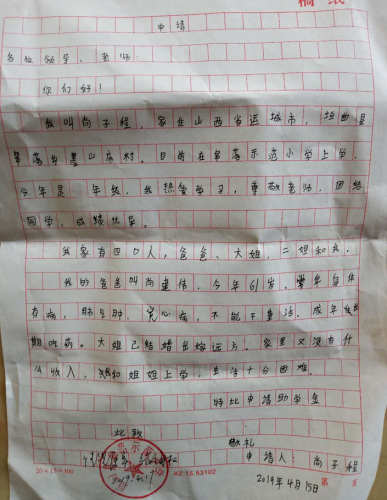 稿纸
申请
各位领导、老师:
你们好!
我叫尚子程。家在山西省运城市,垣曲县
皋落乡墨山底村。目前在皋落示范小学上学,
今年是一年级,我热爱学习,尊敬老师,团结
同学,成绩优异。
我家有四口人,爸爸、大姐、二姐和我。
我的爸爸叫尚 伟,今年61岁,常年身体
有病,肺 肿,冠心病,不能干重活。成年
期吃药。大姐已结婚出嫁远方。家里又没有什
么收入,我和姐姐上学,生活十分困难。
特此申请助学金
此致
敬礼
申请人:尚子程
2019年4月15日
20×15=300
K2.16.53102
第 页